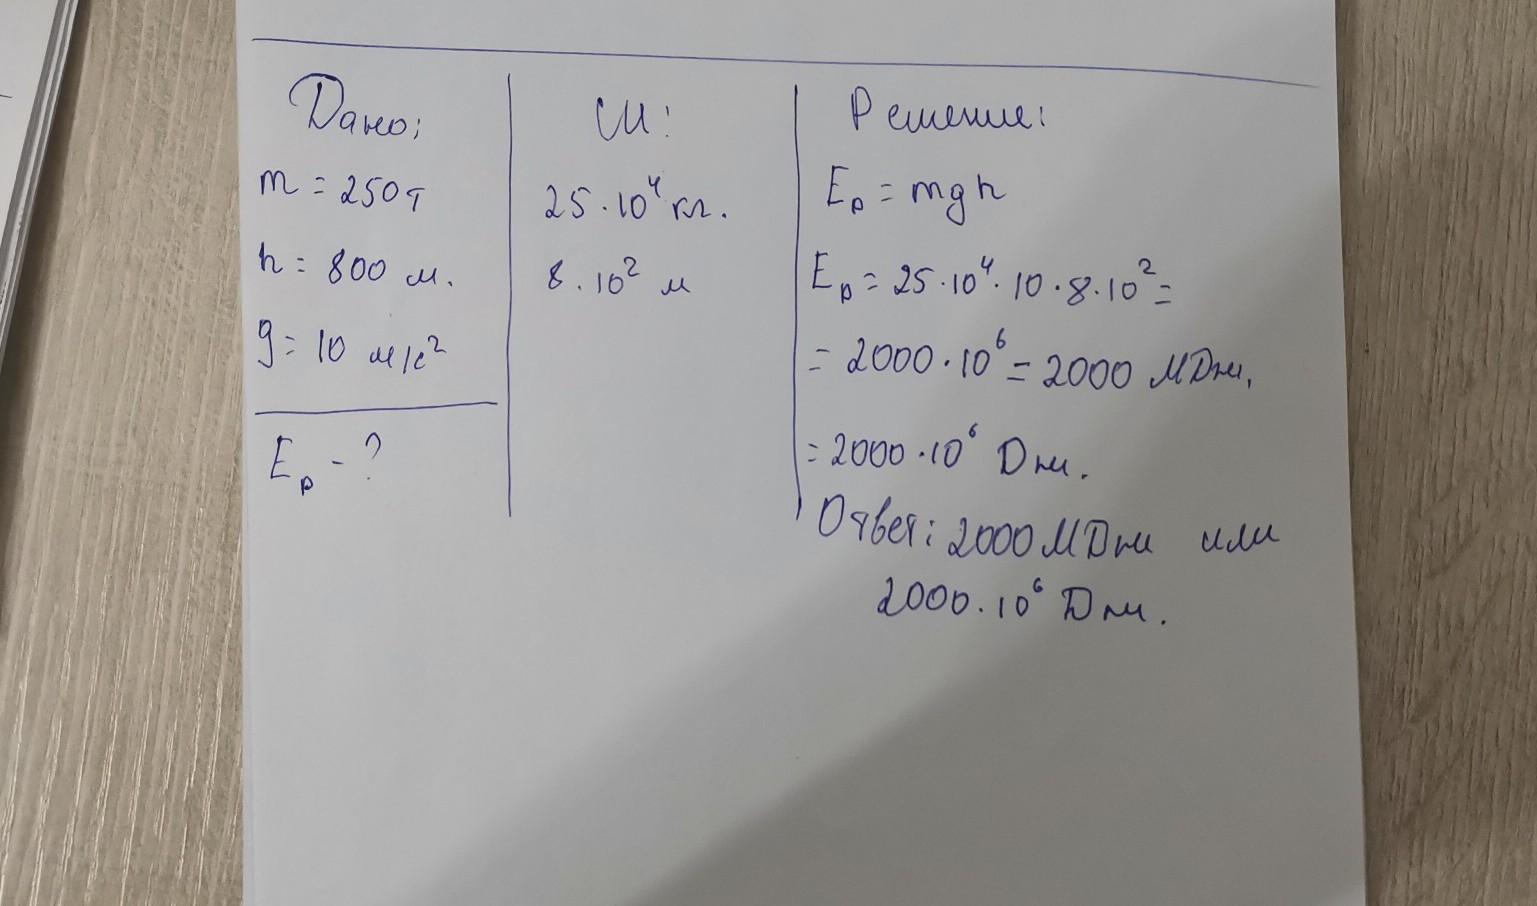 Дано:
m = 250т
h = 800 м.
g = 10 м/с²
Eₚ - ?
СИ:
25·10⁴ кг.
8·10² м
Решение:
Eₚ = mgh
Eₚ = 25·10⁴·10·8·10² =
= 2000·10⁶ = 2000 МДж,
= 2000·10⁶ Дж.
Ответ: 2000 МДж или
2000·10⁶ Дж.